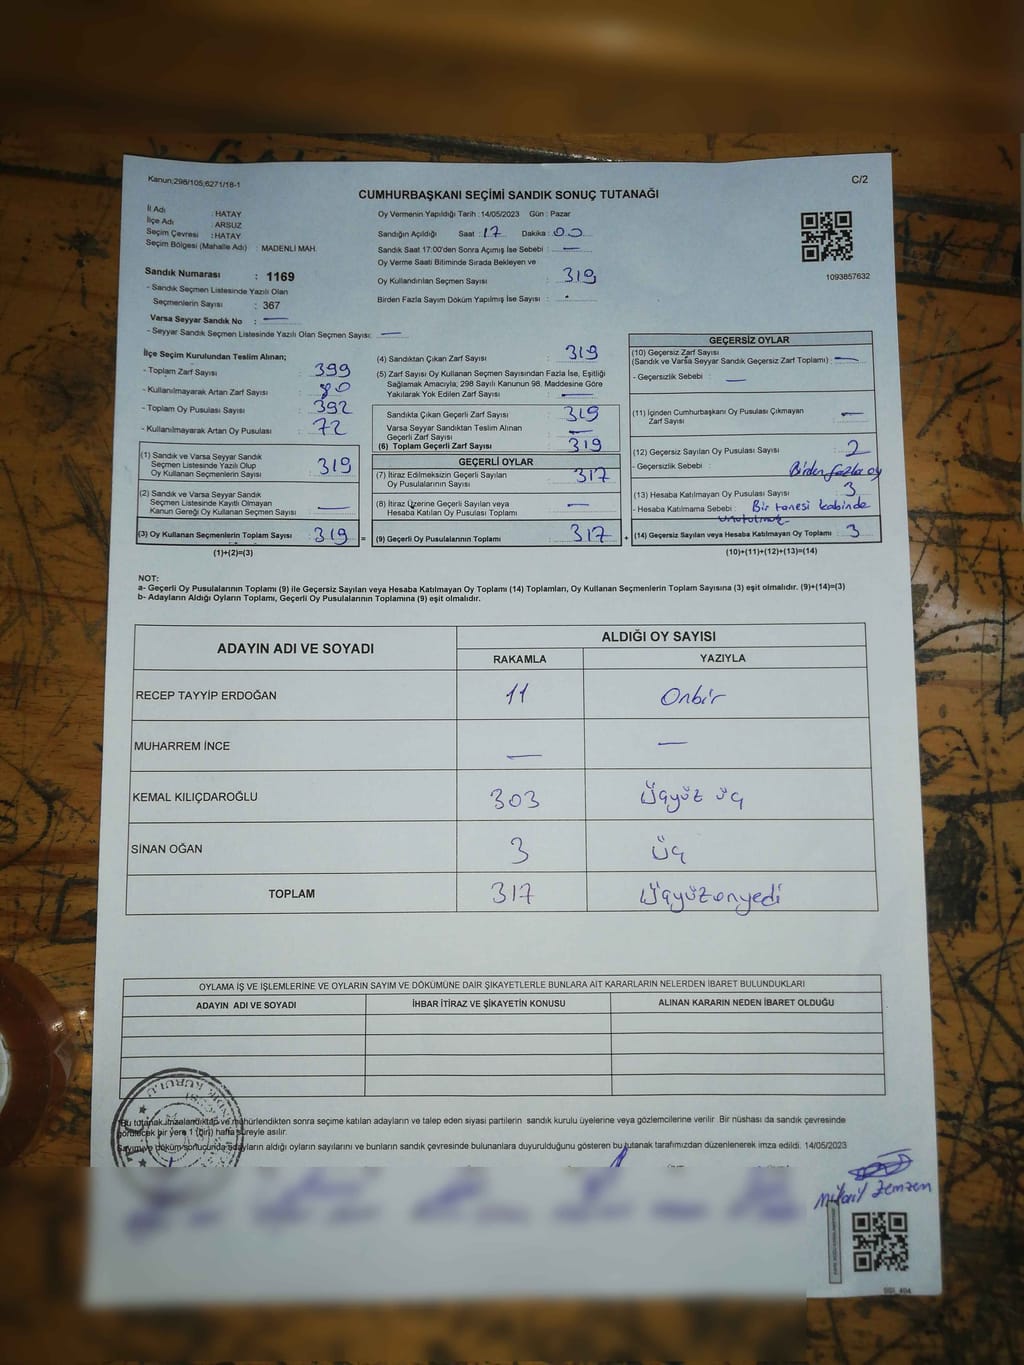 Kanun;298/105;6271/18-1
C/2
CUMHURBAŞKANI SEÇİMİ SANDIK SONUÇ TUTANAĞI
İl Adı : HATAY
İlçe Adı : ARSUZ
Seçim Çevresi : HATAY
Seçim Bölgesi (Mahalle Adı) : MADENLİ MAH.
Oy Vermenin Yapıldığı Tarih : 14/05/2023 Gün : Pazar
Sandığın Açıldığı Saat : 17 Dakika : 00
Sandık Saat 17:00'den Sonra Açımış İse Sebebi : —
Oy Verme Saati Bitiminde Sırada Bekleyen ve
Oy Kullandırılan Seçmen Sayısı : 319
Birden Fazla Sayım Döküm Yapılmış İse Sayısı :
1093857632
Sandık Numarası : 1169
- Sandık Seçmen Listesinde Yazılı Olan
Seçmenlerin Sayısı : 367
Varsa Seyyar Sandık No : —
- Seyyar Sandık Seçmen Listesinde Yazılı Olan Seçmen Sayısı: —
İlçe Seçim Kurulundan Teslim Alınan;
- Toplam Zarf Sayısı : 399
- Kullanılmayarak Artan Zarf Sayısı : 80
- Toplam Oy Pusulası Sayısı : 392
- Kullanılmayarak Artan Oy Pusulası : 72
(1) Sandık ve Varsa Seyyar Sandık
Seçmen Listesinde Yazılı Olup
Oy Kullanan Seçmenlerin Sayısı : 319
(2) Sandık ve Varsa Seyyar Sandık
Seçmen Listesinde Kayıtlı Olmayan
Kanun Gereği Oy Kullanan Seçmen Sayısı : —
(3) Oy Kullanan Seçmenlerin Toplam Sayısı : 319 =
(1)+(2)=(3)
(4) Sandıktan Çıkan Zarf Sayısı : 319
(5) Zarf Sayısı Oy Kullanan Seçmen Sayısından Fazla İse, Eşitliği
Sağlamak Amacıyla; 298 Sayılı Kanunun 98. Maddesine Göre
Yakılarak Yok Edilen Zarf Sayısı : —
Sandıkta Çıkan Geçerli Zarf Sayısı : 319
Varsa Seyyar Sandıktan Teslim Alınan
Geçerli Zarf Sayısı : —
(6) Toplam Geçerli Zarf Sayısı : 319
GEÇERLİ OYLAR
(7) İtiraz Edilmeksizin Geçerli Sayılan
Oy Pusulalarının Sayısı : 317
(8) İtiraz Üzerine Geçerli Sayılan veya
Hesaba Katılan Oy Pusulası Toplamı : —
(9) Geçerli Oy Pusulalarının Toplamı : 317 +
GEÇERSİZ OYLAR
(10) Geçersiz Zarf Sayısı
(Sandık ve Varsa Seyyar Sandık Geçersiz Zarf Toplamı) : —
- Geçersizlik Sebebi : —
(11) İçinden Cumhurbaşkanı Oy Pusulası Çıkmayan
Zarf Sayısı : —
(12) Geçersiz Sayılan Oy Pusulası Sayısı : 2
- Geçersizlik Sebebi : Birden fazla oy
(13) Hesaba Katılmayan Oy Pusulası Sayısı : 3
- Hesaba Katılmama Sebebi : Bir tanesi kabinde
unutulmak
(14) Geçersiz Sayılan veya Hesaba Katılmayan Oy Toplamı : 3
(10)+(11)+(12)+(13)=(14)
NOT:
a- Geçerli Oy Pusulalarının Toplamı (9) ile Geçersiz Sayılan veya Hesaba Katılmayan Oy Toplamı (14) Toplamları, Oy Kullanan Seçmenlerin Toplam Sayısına (3) eşit olmalıdır. (9)+(14)=(3)
b- Adayların Aldığı Oyların Toplamı, Geçerli Oy Pusulalarının Toplamına (9) eşit olmalıdır.
ADAYIN ADI VE SOYADI
ALDIĞI OY SAYISI
RAKAMLA YAZIYLA
RECEP TAYYİP ERDOĞAN 11 Onbir
MUHARREM İNCE — —
KEMAL KILIÇDAROĞLU 303 Üçyüz üç
SİNAN OĞAN 3 Üç
TOPLAM 317 Üçyüzonyedi
OYLAMA İŞ VE İŞLEMLERİNE VE OYLARIN SAYIM VE DÖKÜMÜNE DAİR ŞİKAYETLERLE BUNLARA AİT KARARLARIN NELERDEN İBARET BULUNDUKLARI
ADAYIN ADI VE SOYADI İHBAR İTİRAZ VE ŞİKAYETİN KONUSU ALINAN KARARIN NEDEN İBARET OLDUĞU
Bu tutanak imzalandıktan ve mühürlendikten sonra seçime katılan adayların ve talep eden siyasi partilerin sandık kurulu üyelerine veya gözlemcilerine verilir. Bir nüshası da sandık çevresinde
görülecek bir yere 1 (bir) hafta süreyle asılır.
Sayım ve döküm sonucunda adayların aldığı oyların sayılarını ve bunların sandık çevresinde bulunanlara duyurulduğunu gösteren bu tutanak tarafımızdan düzenlenerek imza edildi. 14/05/2023
Zemzem